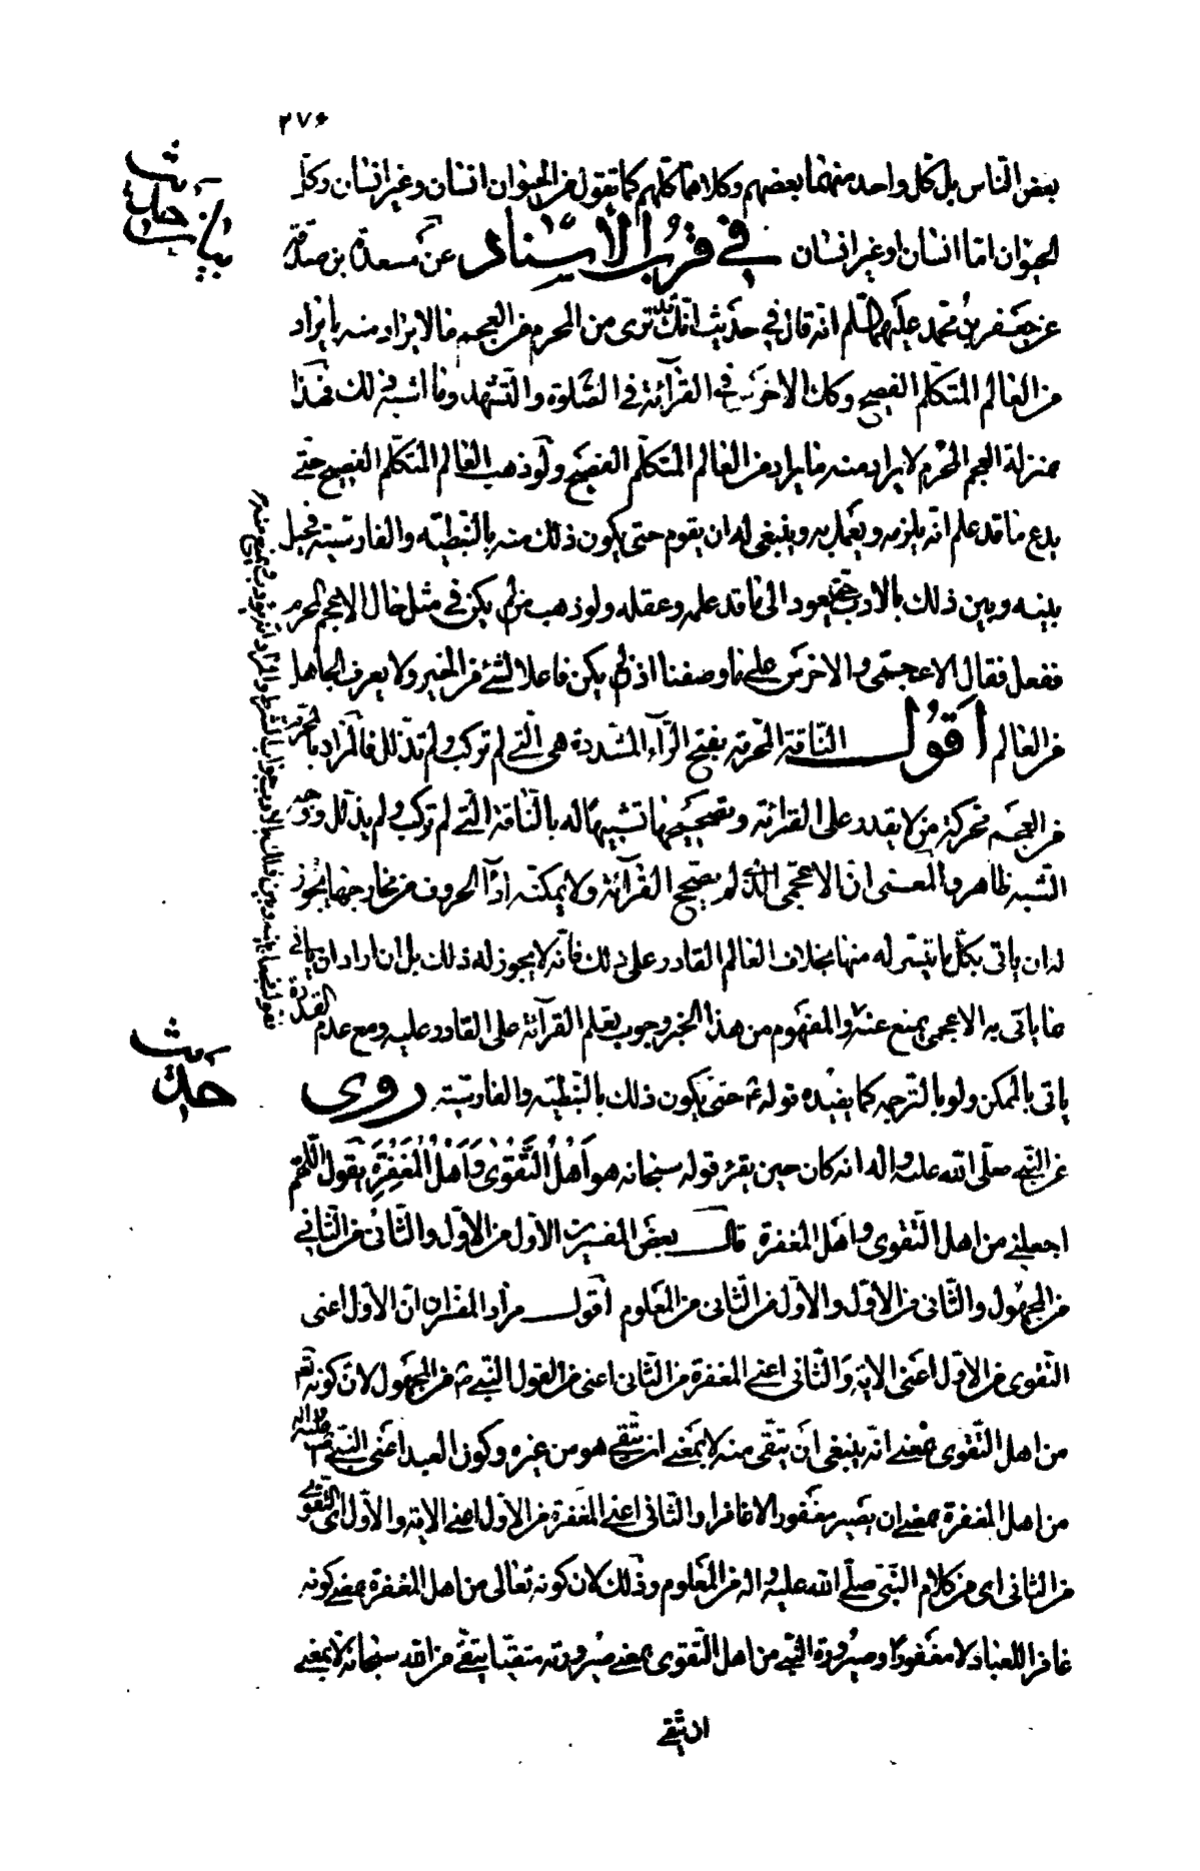 ٢٧٦
بعض الناس بل كل واحد منهما بعضهم وكلاهما كلهم كما تقول من الحيوان انسان وغير انسان وكل
الحيوان اما انسان او غير انسان في قرب الأسناد عن مسعدة بن صدقة
بيان حديث
عن جعفر بن محمد عليهما السلم انه قال في حديث انك قد ترى من المحرم من العجم ما لا يراد منه ما يراد
من العالم المتكلم الفصيح وكذلك الاخرس في القرآءة في الصلوة والتشهد وما اشبه ذلك فهذا
بمنزلة العجم المحرم لا يراد منه ما يراد من العالم المتكلم الفصيح ولو ذهب العالم المتكلم الفصيح حتى
يدع ما قد علم انه يلزمه ويعمل به وينبغي له ان يقوم حتى يكون ذلك منه بالنبطية والفارسية فحيل
بينه وبين ذلك بالادب حتى يعود الى ما قد علمه وعقله ولو ذهب من لم يكن في مثل حال الاعجم المحرم
ففعل فقال الاعجمي والاخرس على ما وصفنا اذ لم يكن فاعلا لشئ من الخير ولا يعرف الجاهل
من العالم اقول الناقة المحرمة بفتح الرآء المشددة هي التي لم تركب ولم تذلل فالمراد بالمحرم
من العجم محركة من لا يقدر على القرائة وتصحيحها تشبيها له بالناقة التي لم تركب ولم يذلل ووجه
الشبه ظاهر والمعنى ان الاعجمي الذي لم يصحح القرآءة ولا يمكنه ادآ الحروف من مخارجها يجوز
له ان ياتي بكل ما يتيسر له منها بخلاف العالم القادر على ذلك فانه لا يجوز له ذلك بل ان اراد ان ياتي
بما ياتي به الاعجمي يمنع عنه والمفهوم من هذا الخبر وجوب تعلم القرآءة على القادر عليه ومع عدم القدرة
ياتي بالممكن ولو بالترجمه كما يفيده قوله ع حتى يكون ذلك بالنبطية والفارسية روى
حديث
عن النبي صلى الله عليه واله انه كان حين يقرء قوله سبحانه هو اهل التقوى واهل المغفرة يقول اللهم
اجعلني من اهل التقوى واهل المغفرة قال بعض المفسرين الاول من الاول والثاني من الثاني
من المجهول والثاني من الاول والاول من الثاني من المعلوم اقول مراد المفسران الاول اعنى
التقوى من الاول اعنى الاية والثاني اعنى المغفرة من الثاني اعنى من القول النبي ص من المجهول لان كونه تعم
من اهل التقوى بمعنى انه ينبغي ان يتقى منه لا بمعنى ان يتقى هو من غيره وكون العبد اعنى النبي صلى الله عليه واله
من اهل المغفرة بمعنى ان يصير مغفورا لا غافرا والثاني اعنى المغفرة من الاول اعنى الاية والاول اى التقوى
من الثاني اى من كلام النبي صلى الله عليه واله من المعلوم وذلك لان كونه تعالى من اهل المغفرة بمعنى كونه
غافرا للعباد لا مغفورا وصيرورة النبي من اهل التقوى بمعنى صيرورته متقيا يتقى من الله سبحانه لا بمعنى
ان يتقى